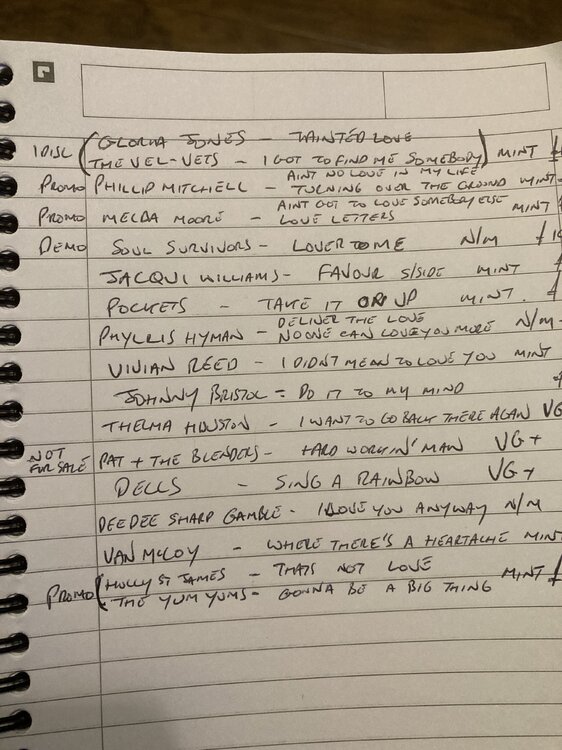 GLORIA JONES - TAINTED LOVE
1 DISC ( THE VEL-VETS - I GOT TO FIND ME SOMEBODY ) MINT £
AINT NO LOVE IN MY LIFE
PROMO PHILLIP MITCHELL - TURNING OVER THE GROUND MINT -
AINT GOT TO LOVE SOMEBODY ELSE
PROMO MELBA MOORE - LOVE LETTERS MINT £
DEMO SOUL SURVIVORS - LOVER TO ME N/M £
JACQUI WILLIAMS - FAVOUR S/SIDE MINT £
POCKETS - TAKE IT ON UP MINT. £
DELIVER THE LOVE
PHYLLIS HYMAN - NO ONE CAN LOVE YOU MORE N/M -
VIVIAN REED - I DIDNT MEAN TO LOVE YOU MINT
JOHNNY BRISTOL = DO IT TO MY MIND
THELMA HOUSTON - I WANT TO GO BACK THERE AGAIN VG
NOT FOR SALE PAT + THE BLENDERS - HARD WORKIN' MAN VG+
DELLS - SING A RAINBOW VG+
DEE DEE SHARP GAMBLE - I LOVE YOU ANYWAY N/M
VAN McCOY - WHERE THERE'S A HEARTACHE MINT
HOLLY ST JAMES - THATS NOT LOVE
PROMO ( THE YUM YUMS - GONNA BE A BIG THING MINT £